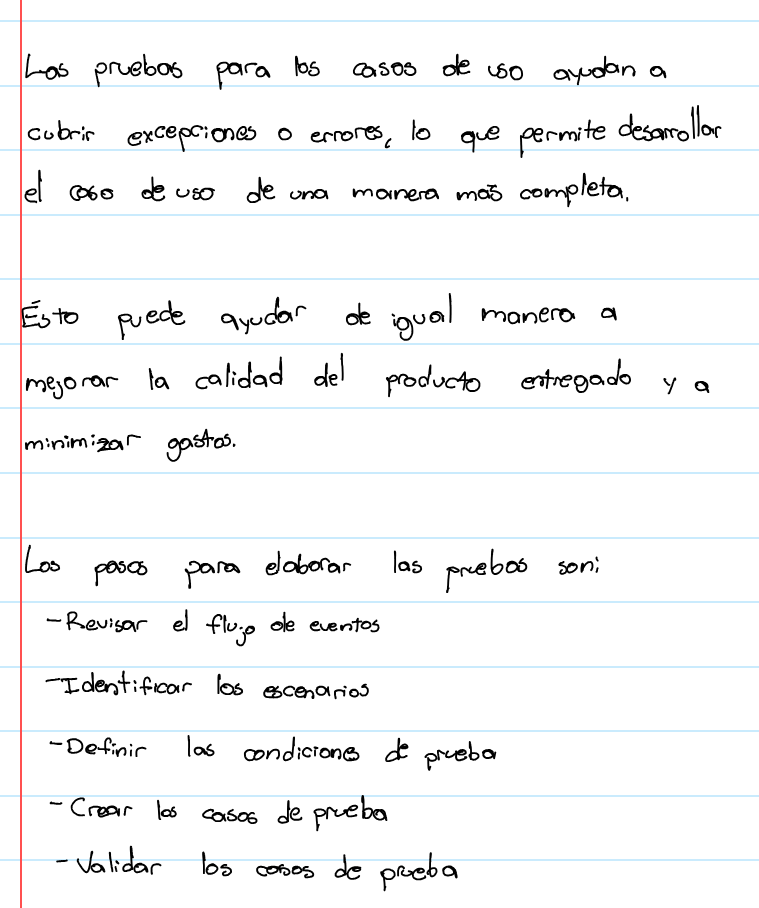 Las pruebas para los casos de uso ayudan a
cubrir excepciones o errores, lo que permite desarrollar
el caso de uso de una manera más completa.
Ésto puede ayudar de igual manera a
mejorar la calidad del producto entregado y a
minimizar gastos.
Los pasos para elaborar las pruebas son:
-Revisar el flujo de eventos
-Identificar los escenarios
-Definir las condiciones de prueba
-Crear los casos de prueba
-Validar los casos de prueba